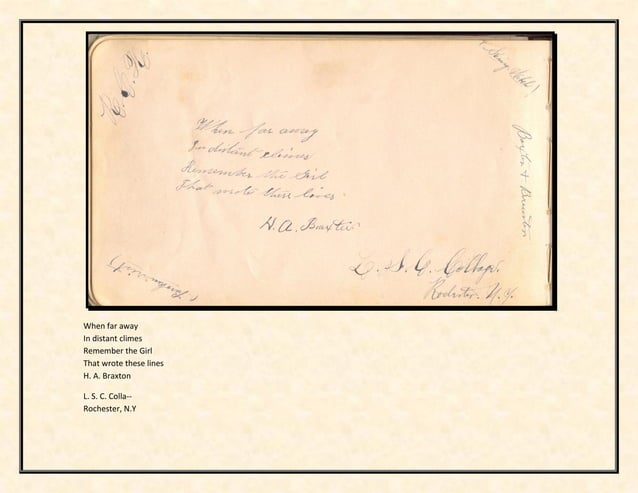 When far away
In distant climes
Remember the Girl
That wrote these lines.
H. A. Baxter
L. S. G. College.
Rochester. N.Y.
Baxter +
When far away
In distant climes
Remember the Girl
That wrote these lines
H. A. Braxton
L. S. C. Colla--
Rochester, N.Y